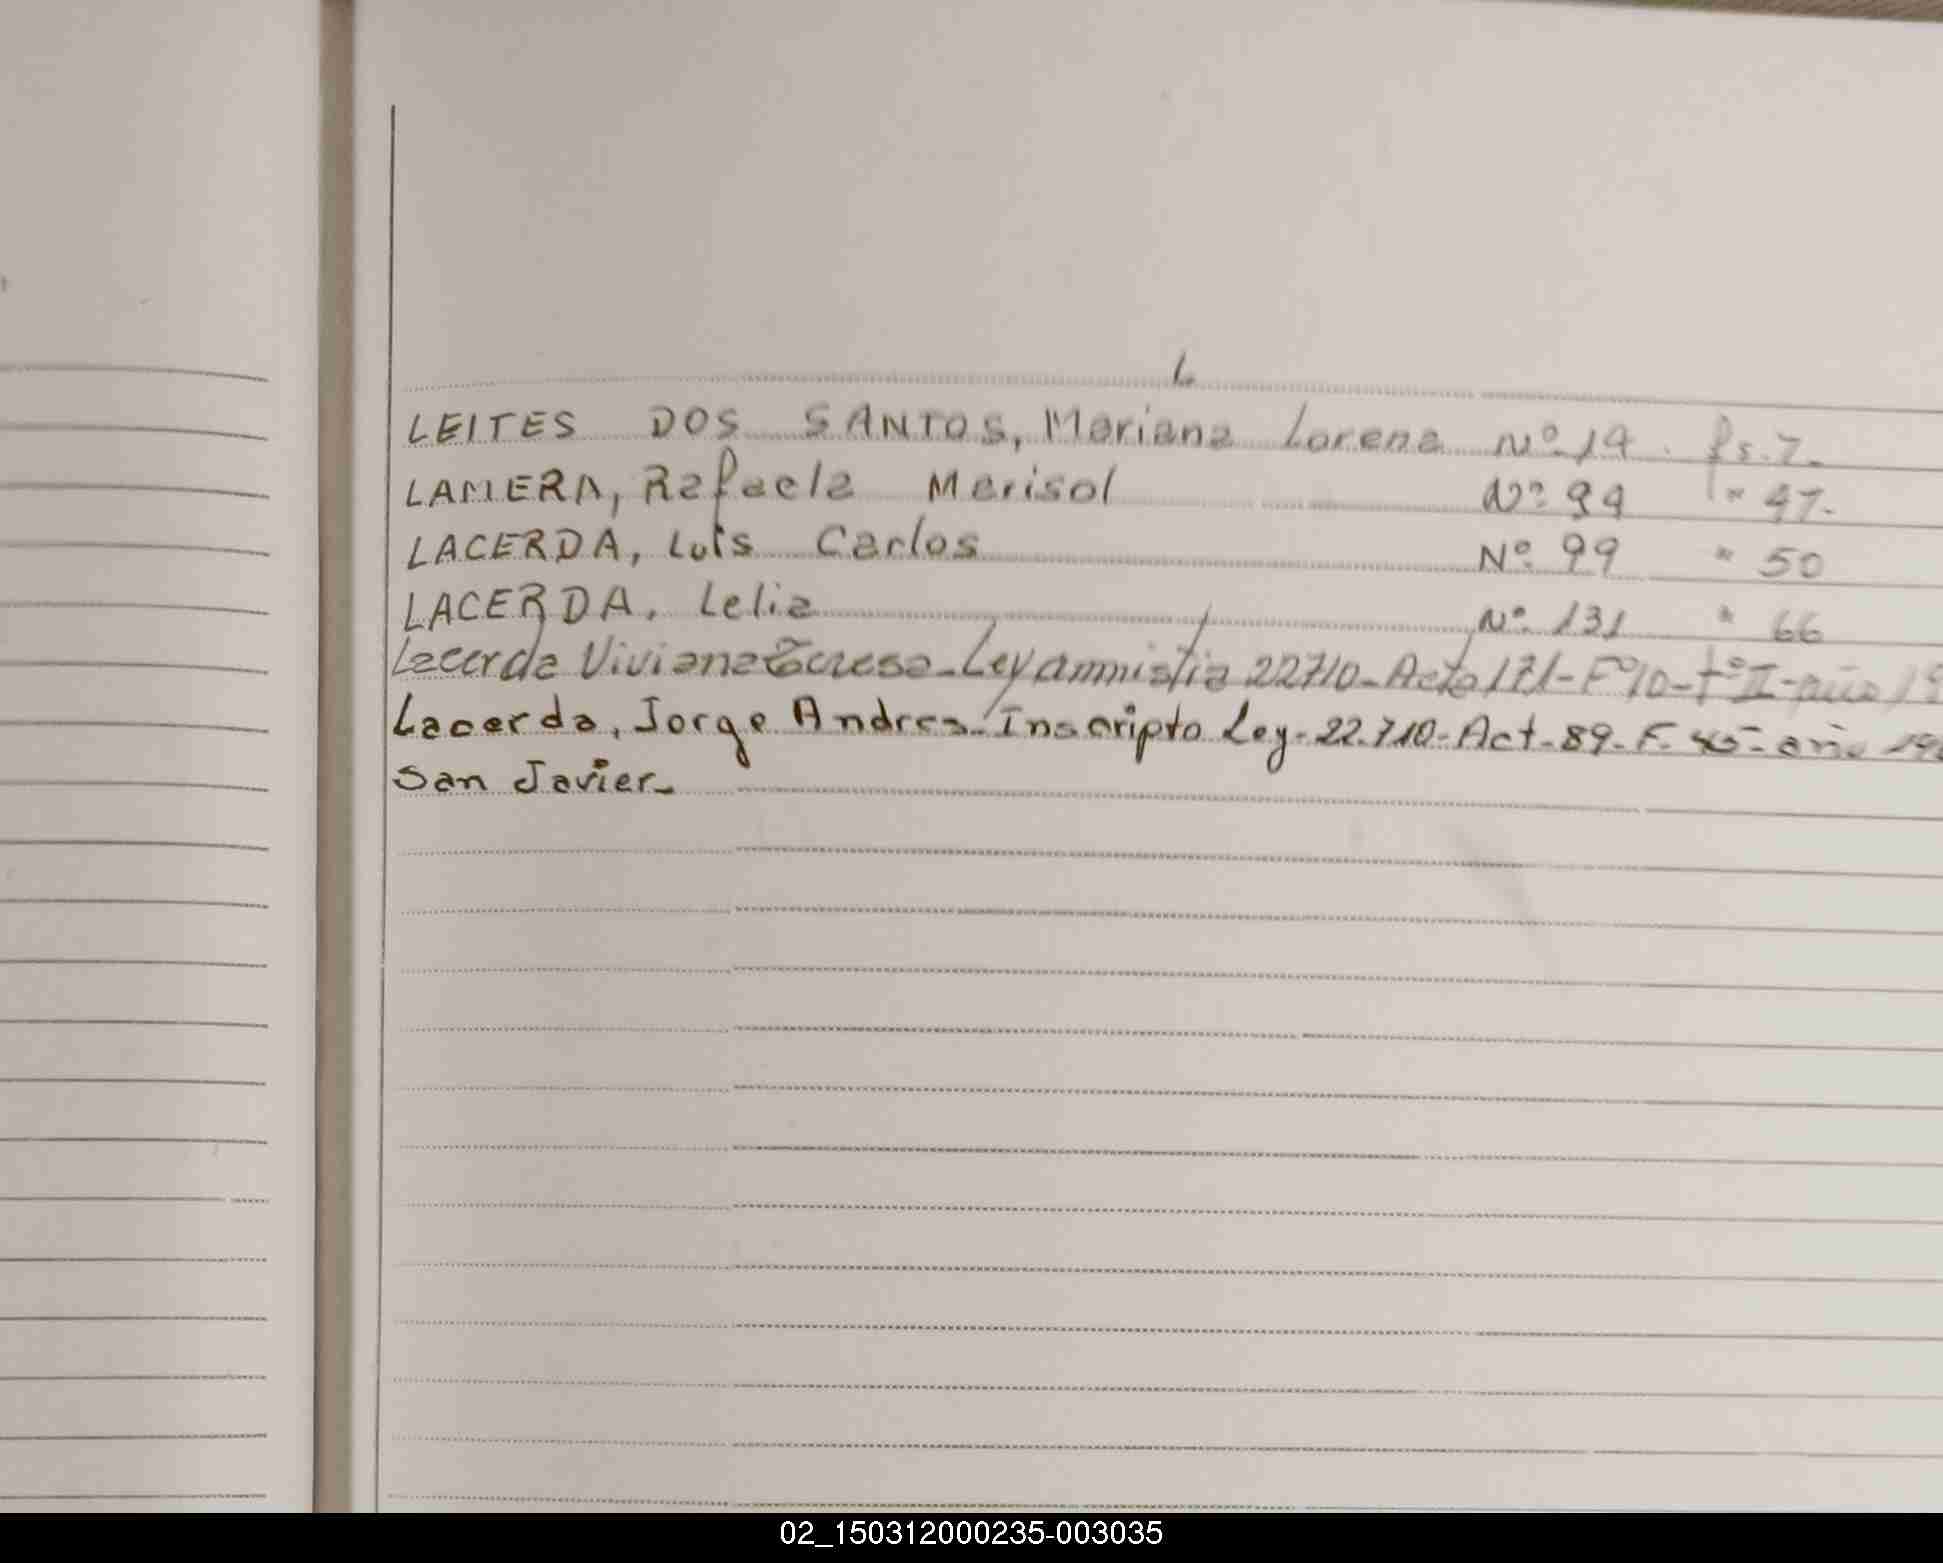 L
LEITES DOS SANTOS, Mariana Lorena Nº 14. fs. 7.
LAMERA, Rafaela Marisol Nº 94 " 47.
LACERDA, Luis Carlos Nº 99 " 50
LACERDA, Lelia Nº 131 " 66
Lacerda Viviana Teresa - Ley amnistia 22710 - Acta 171 - Fº 10 - tº II - año 19
Lacerda, Jorge Andres - Inscripto Ley - 22.710 - Act - 89 - F. 45 - año 19
San Javier -
02_150312000235-003035